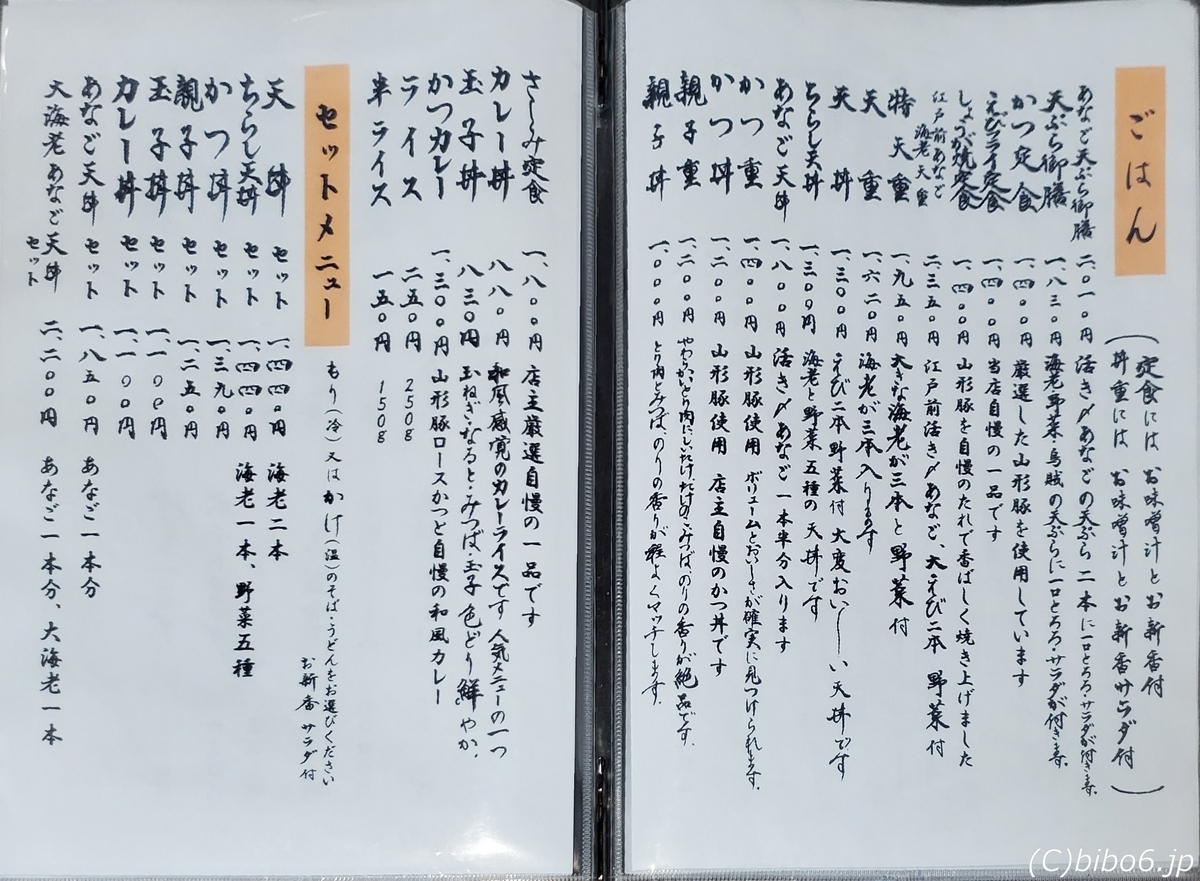 ごはん
(定食には お味噌汁とお新香付
丼重には お味噌汁とお新香サラダ付)
あなご天ぷら御膳 二、〇一〇円 活き〆あなごの天ぷら二本に一口とろろ・サラダが付きます。
天ぷら御膳 一、八三〇円 海老野菜烏賊の天ぷらに一口とろろ・サラダが付きます。
かつ定食 一、四〇〇円 厳選した山形豚を使用しています
えびフライ定食 一、四〇〇円 当店自慢の一品です
しょうが焼定食 一、四〇〇円 山形豚を自慢のたれで香ばしく焼き上げました
江戸前あなご海老天重 二、三五〇円 江戸前活き〆あなご、大えび二本 野菜付
特天重 一、九五〇円 大きな海老が三本と野菜付
天重 一、六二〇円 海老が三本入ります
天丼 一、三〇〇円 えび二本野菜付 大変おいしーい天丼です
ちらし天丼 一、三〇〇円 海老と野菜五種の天丼です
あなご天丼 一、八〇〇円 活き〆あなご一本半分入ります
かつ重 一、四〇〇円 山形豚使用 ボリュームとおいしさが確実に見つけられます。
かつ丼 一、二〇〇円 山形豚使用 店主自慢のかつ丼です
親子重 一、二〇〇円 やわらかいとり肉にしいたけたけのこみつばのりの香りが絶品です。
親子丼 一、〇〇〇円 とり肉とみつば、のりの香りが程よくマッチします。
さしみ定食 一、八〇〇円 店主厳選自慢の一品です
カレー丼 八八〇円 和風感覚のカレーライスです 人気メニューの一つ
玉子丼 八三〇円 玉ねぎ・なると・みつば・玉子 色どり鮮やか、
かつカレー 一、三〇〇円 山形豚ロースかつと自慢の和風カレー
ライス 二五〇円 250g
半ライス 一五〇円 150g
セットメニュー
もり(冷)又はかけ(温)のそば・うどんをお選びください
お新香 サラダ付
天丼セット 一、四四〇円 海老二本
ちらし天丼セット 一、四四〇円 海老一本、野菜五種
かつ丼セット 一、三九〇円
親子丼セット 一、二五〇円
玉子丼セット 一、一〇〇円
カレー丼セット 一、一〇〇円
あなご天丼セット 一、八五〇円 あなご一本分
大海老あなご天丼セット 二、二〇〇円 あなご一本分、大海老一本
(C)bibo6.jp